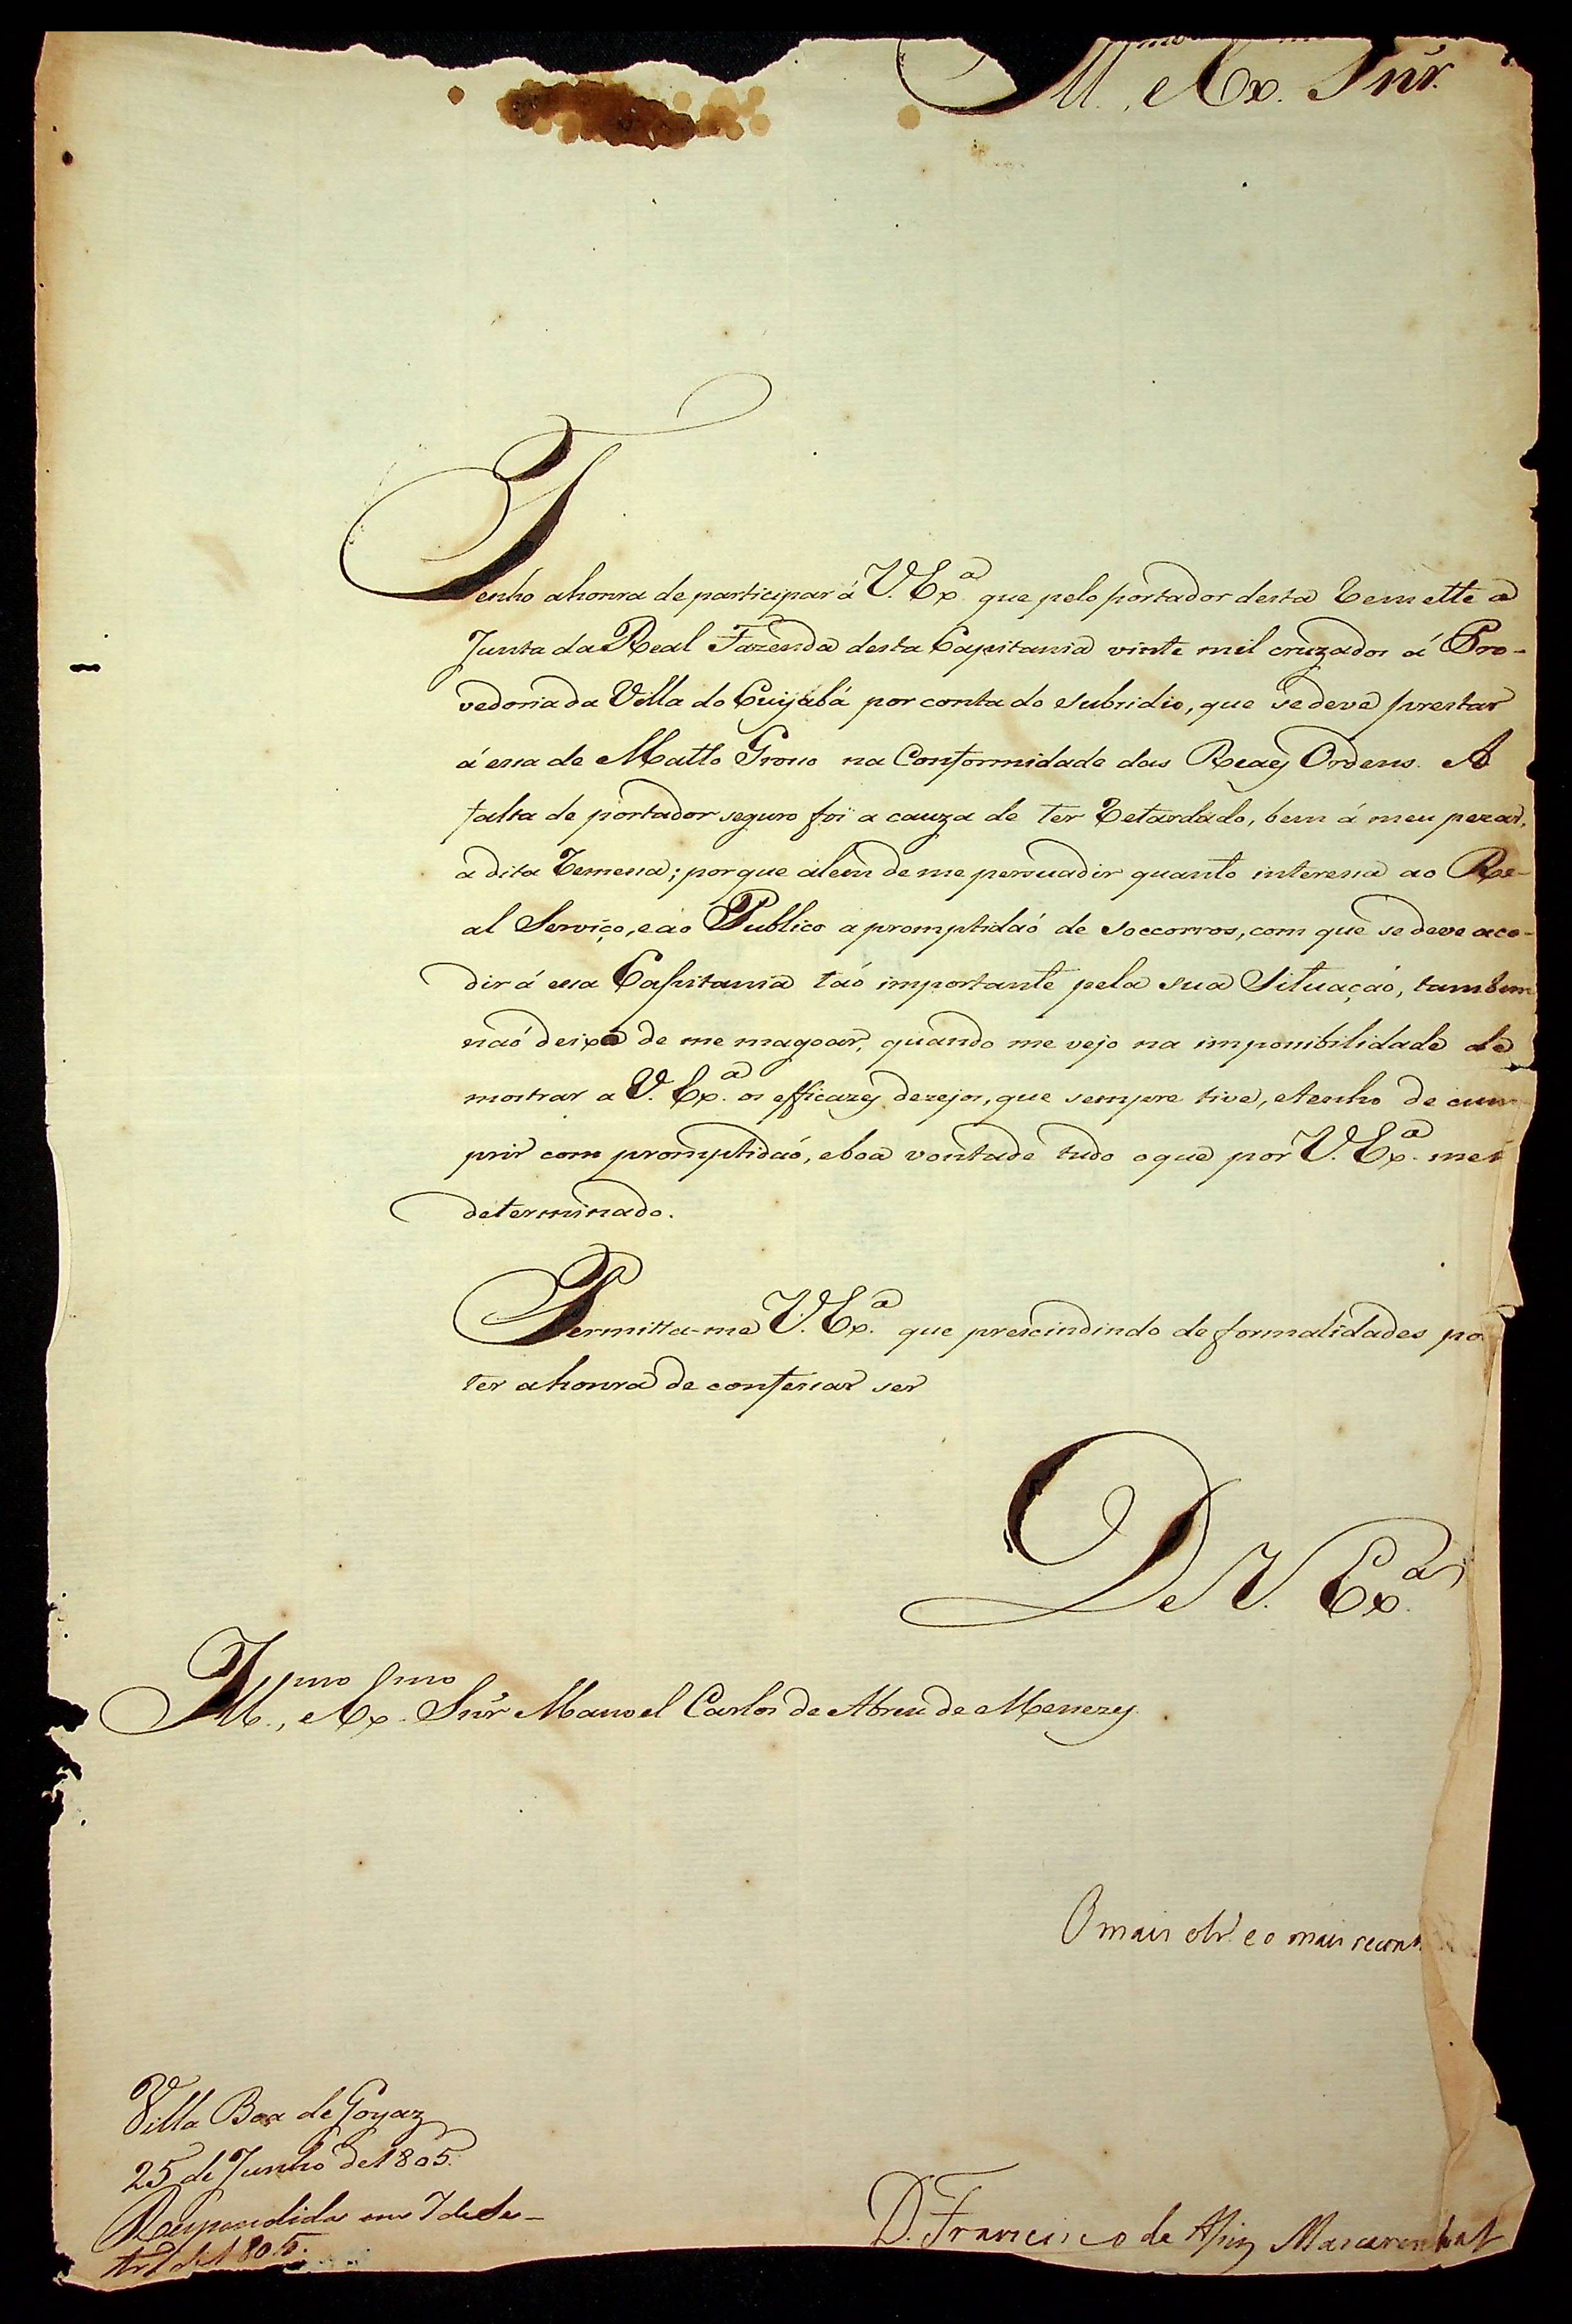 Ill. Ex. Snr.
Tenho ahonra de participar á V. Ex.ª que pelo portador desta Remette a
Junta da Real Fazenda desta Capitania vinte mil cruzados á Pro-
vedoria da Villa do Cuyabá por conta do subsidio, que sedeve prestar
á essa de Matto Grosso na Conformidade das Reaes Ordens. A
falta de portador seguro foi a cauza de ter Retardado, bem á meu pezar,
a dita Remessa; porque alem de me persuadir quanto interessa ao Re-
al Serviço, eao Publico apromptidaõ de soccorros, com que se deve aco-
dir á essa Capitania taõ importante pela sua Situaçaõ, tambem
naõ deixa de me magoar, quando me vejo na impossibilidade de
mostrar a V. Ex.ª os efficazes dezejos, que sempre tive, etenho de cum-
prir com promptidaõ, eboa vontade tudo oque por V. Ex.ª me
determinado.
Permitta-me V. Ex.ª que prescindindo deformalidades
ter ahonra de confessar ser
De V. Ex.ª
Ill.mo, e Ex.mo Snr Manoel Carlos de Abreu de Menezes
O mais obr. e o mais
Villa Boa de Goyaz
25 de Junho de 1805.
Respondida em 7 de Se-
tr.º de 1805.
D. Francisco de Assiz Mascarenhas